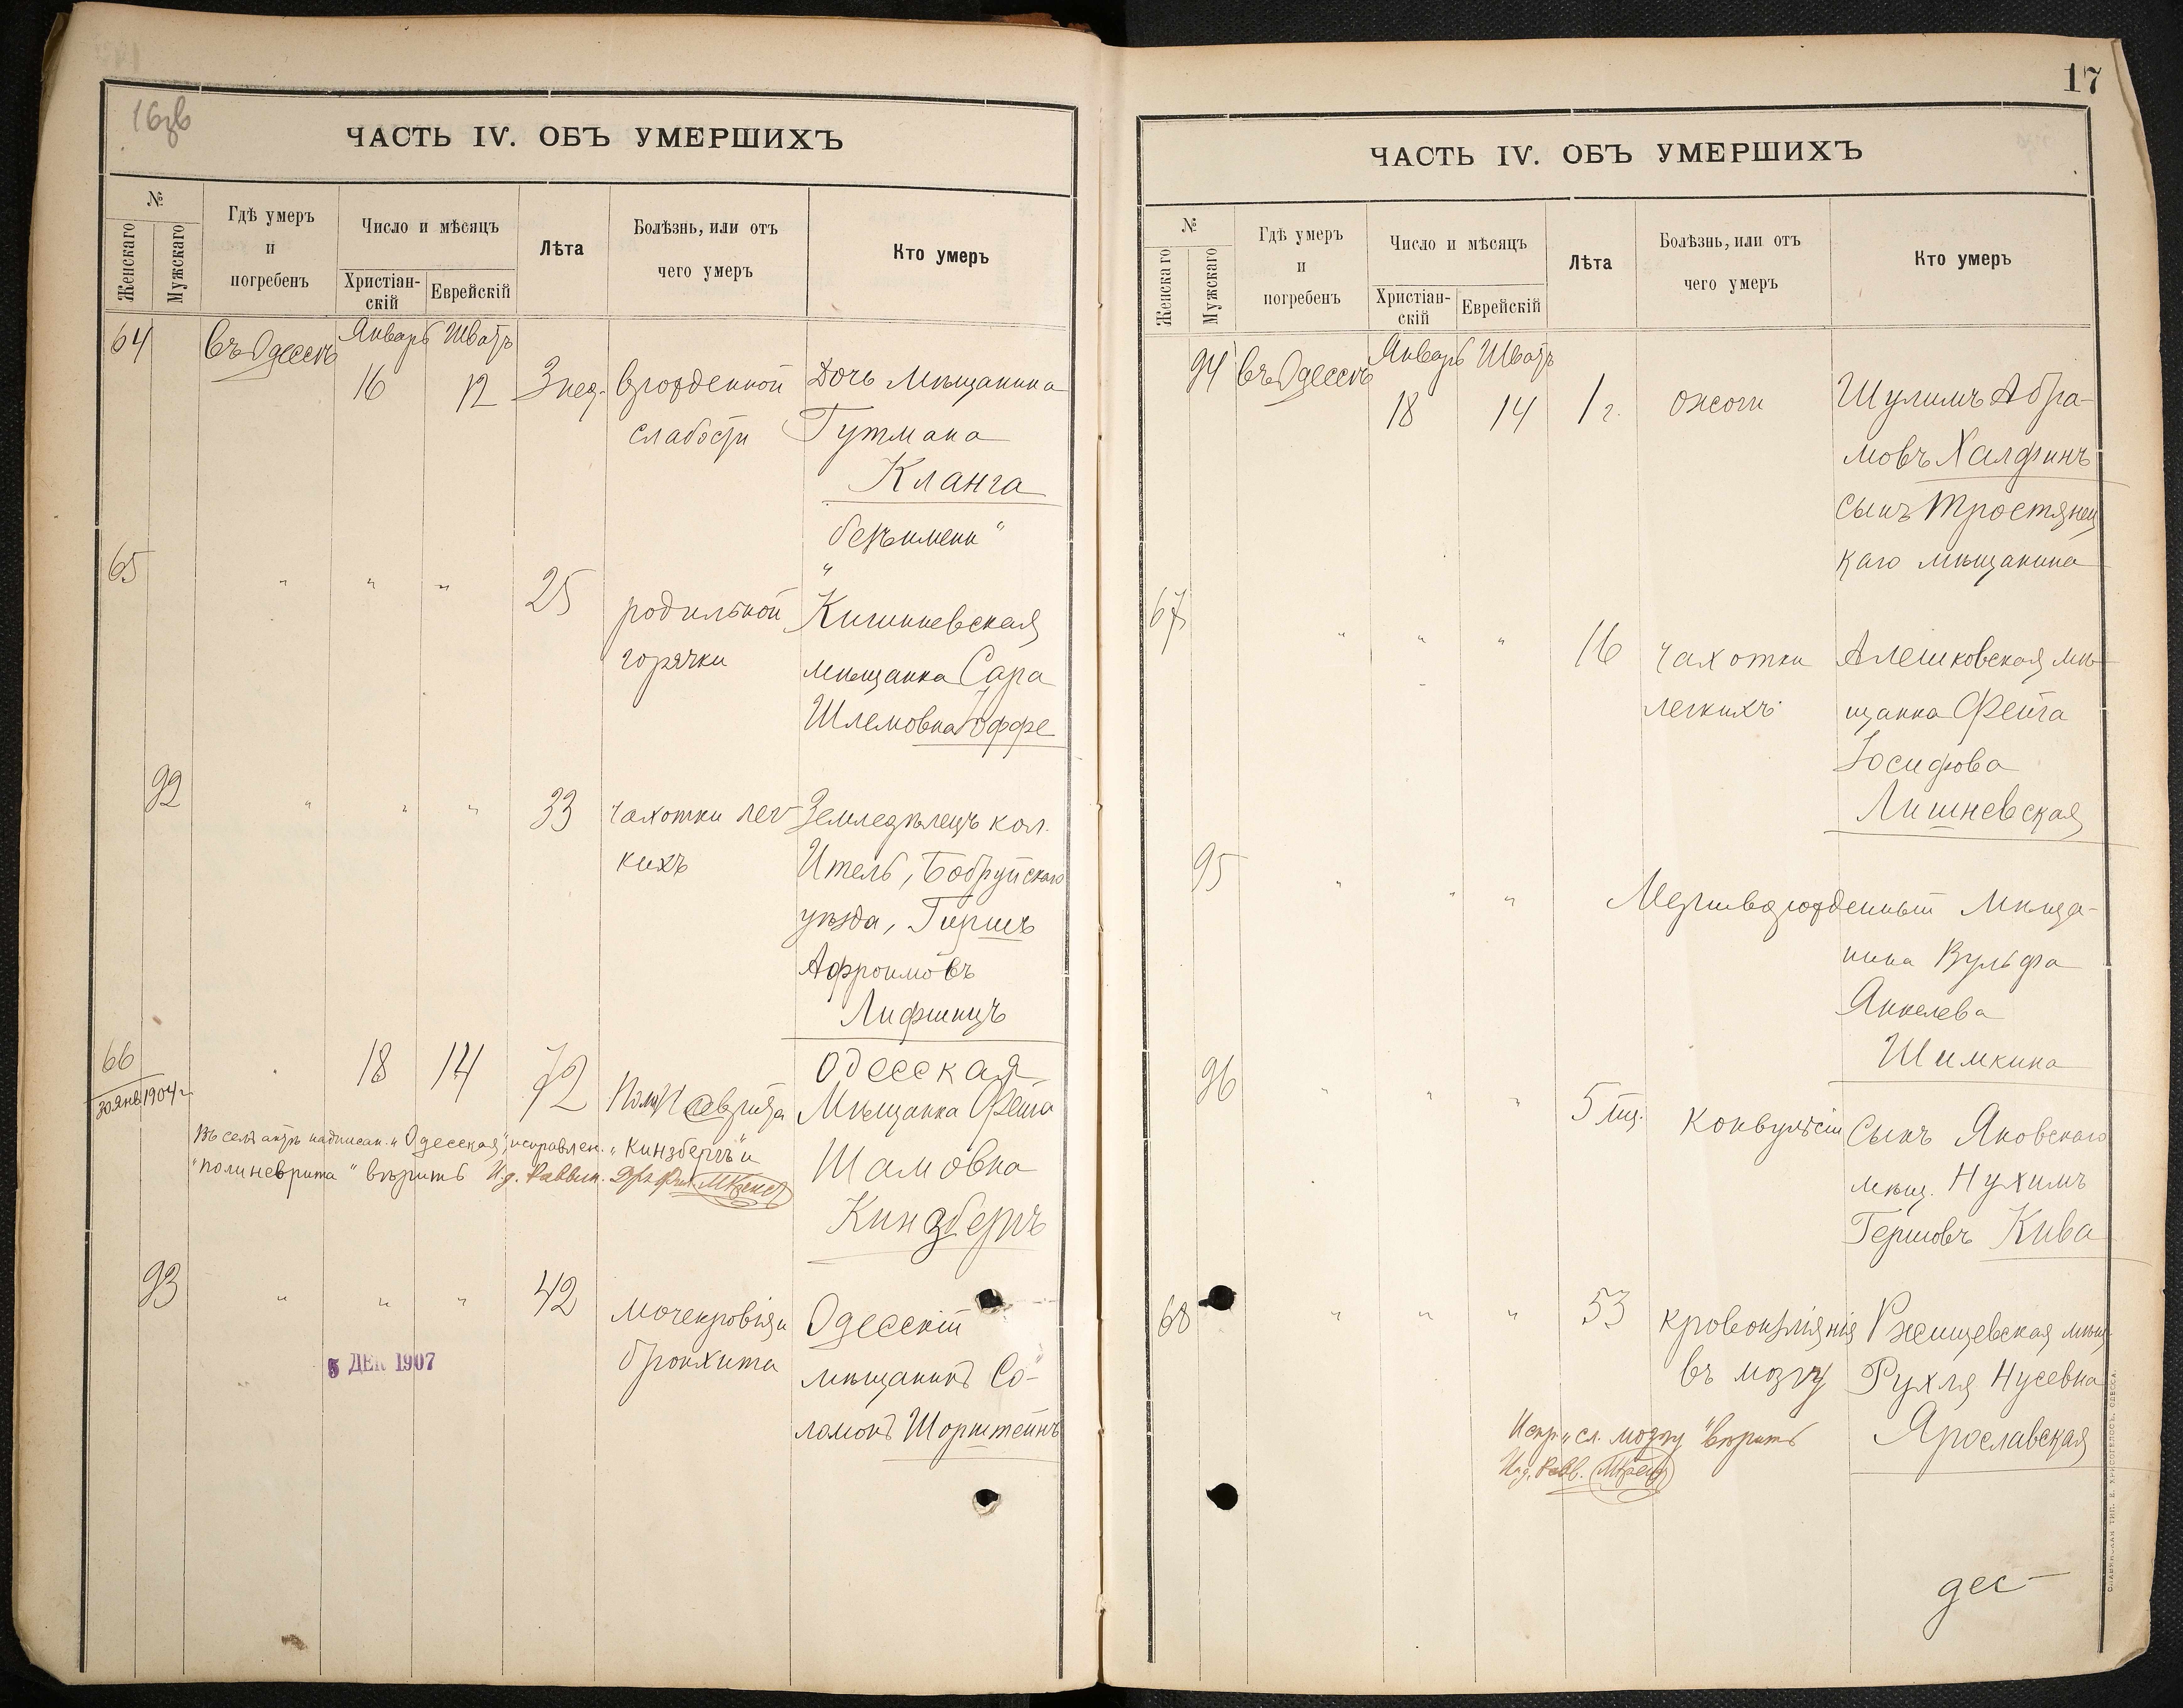 16об
ЧАСТЬ IV. ОБЪ УМЕРШИХЪ
№
Женскаго
Мужскаго
Гдѣ умеръ
и
погребенъ
Число и мѣсяцъ
Христіан-
скій
Еврейскій
Лѣта
Болѣзнь, или отъ
чего умеръ
Кто умеръ
64 въ Одессѣ Январь Шватъ
16 12 3 нед. врожденной Дочь Мѣщанина
слабости Гутмана
Кланга
безъ имени"
65 " " " 25 родильной Кишиневская
горячки мѣщанка Сара
Шлемовна Іоффе
92 " " " 33 чахотки лег- Земледѣлецъ кол.
кихъ Итель, Бобруйскаго
уѣзда, Гиршъ
Афроимовъ
Лифшицъ
66 18 14 72 Полиневрита Одесская
30 янв 1904 г. Мѣщанка Фейга
Въ семъ актѣ надписан. „Одесская", исправлен. „Кинзбергъ" и
"полиневрита" вѣрить И.д. Раввин.
Шамовна
Кинзбергъ
93 " " " 42 мочекровія и Одесскій
бронхита мѣщанинъ Со-
ломонъ Шорнштейнъ
5 ДЕК 1907
17
ЧАСТЬ IV. ОБЪ УМЕРШИХЪ
№
Женскаго
Мужскаго
Гдѣ умеръ
и
погребенъ
Число и мѣсяцъ
Христіан-
скій
Еврейскій
Лѣта
Болѣзнь, или отъ
чего умеръ
Кто умеръ
94 въ Одессѣ Январь Шватъ
18 14 1 г. ожоги Шулимъ Абра-
мовъ Халфинъ
сынъ Тростянец
каго мѣщанина
67 " " " 16 чахотки Алешковская мѣ-
легкихъ щанка Фейга
Іосифова
Лишневская
95 " " " Мертворожденный Мѣща-
нина Вульфа
Янкелева
Шимкина
96 " " " 5 мц. Конвульсіи Сынъ Яновскаго
мѣщ. Нухимъ
Гершовъ Кива
68 " " " 53 кровоизліянія Ржищевская мѣщ.
въ мозгу Рухля Нусевна
Ярославская
Испр. „сл. мозгу" вѣрить
И.д. Равв.
дес-
СЛАВЯНСКАЯ ТИП. Е. ХРИСОГЕЛОСЪ, ОДЕССА.